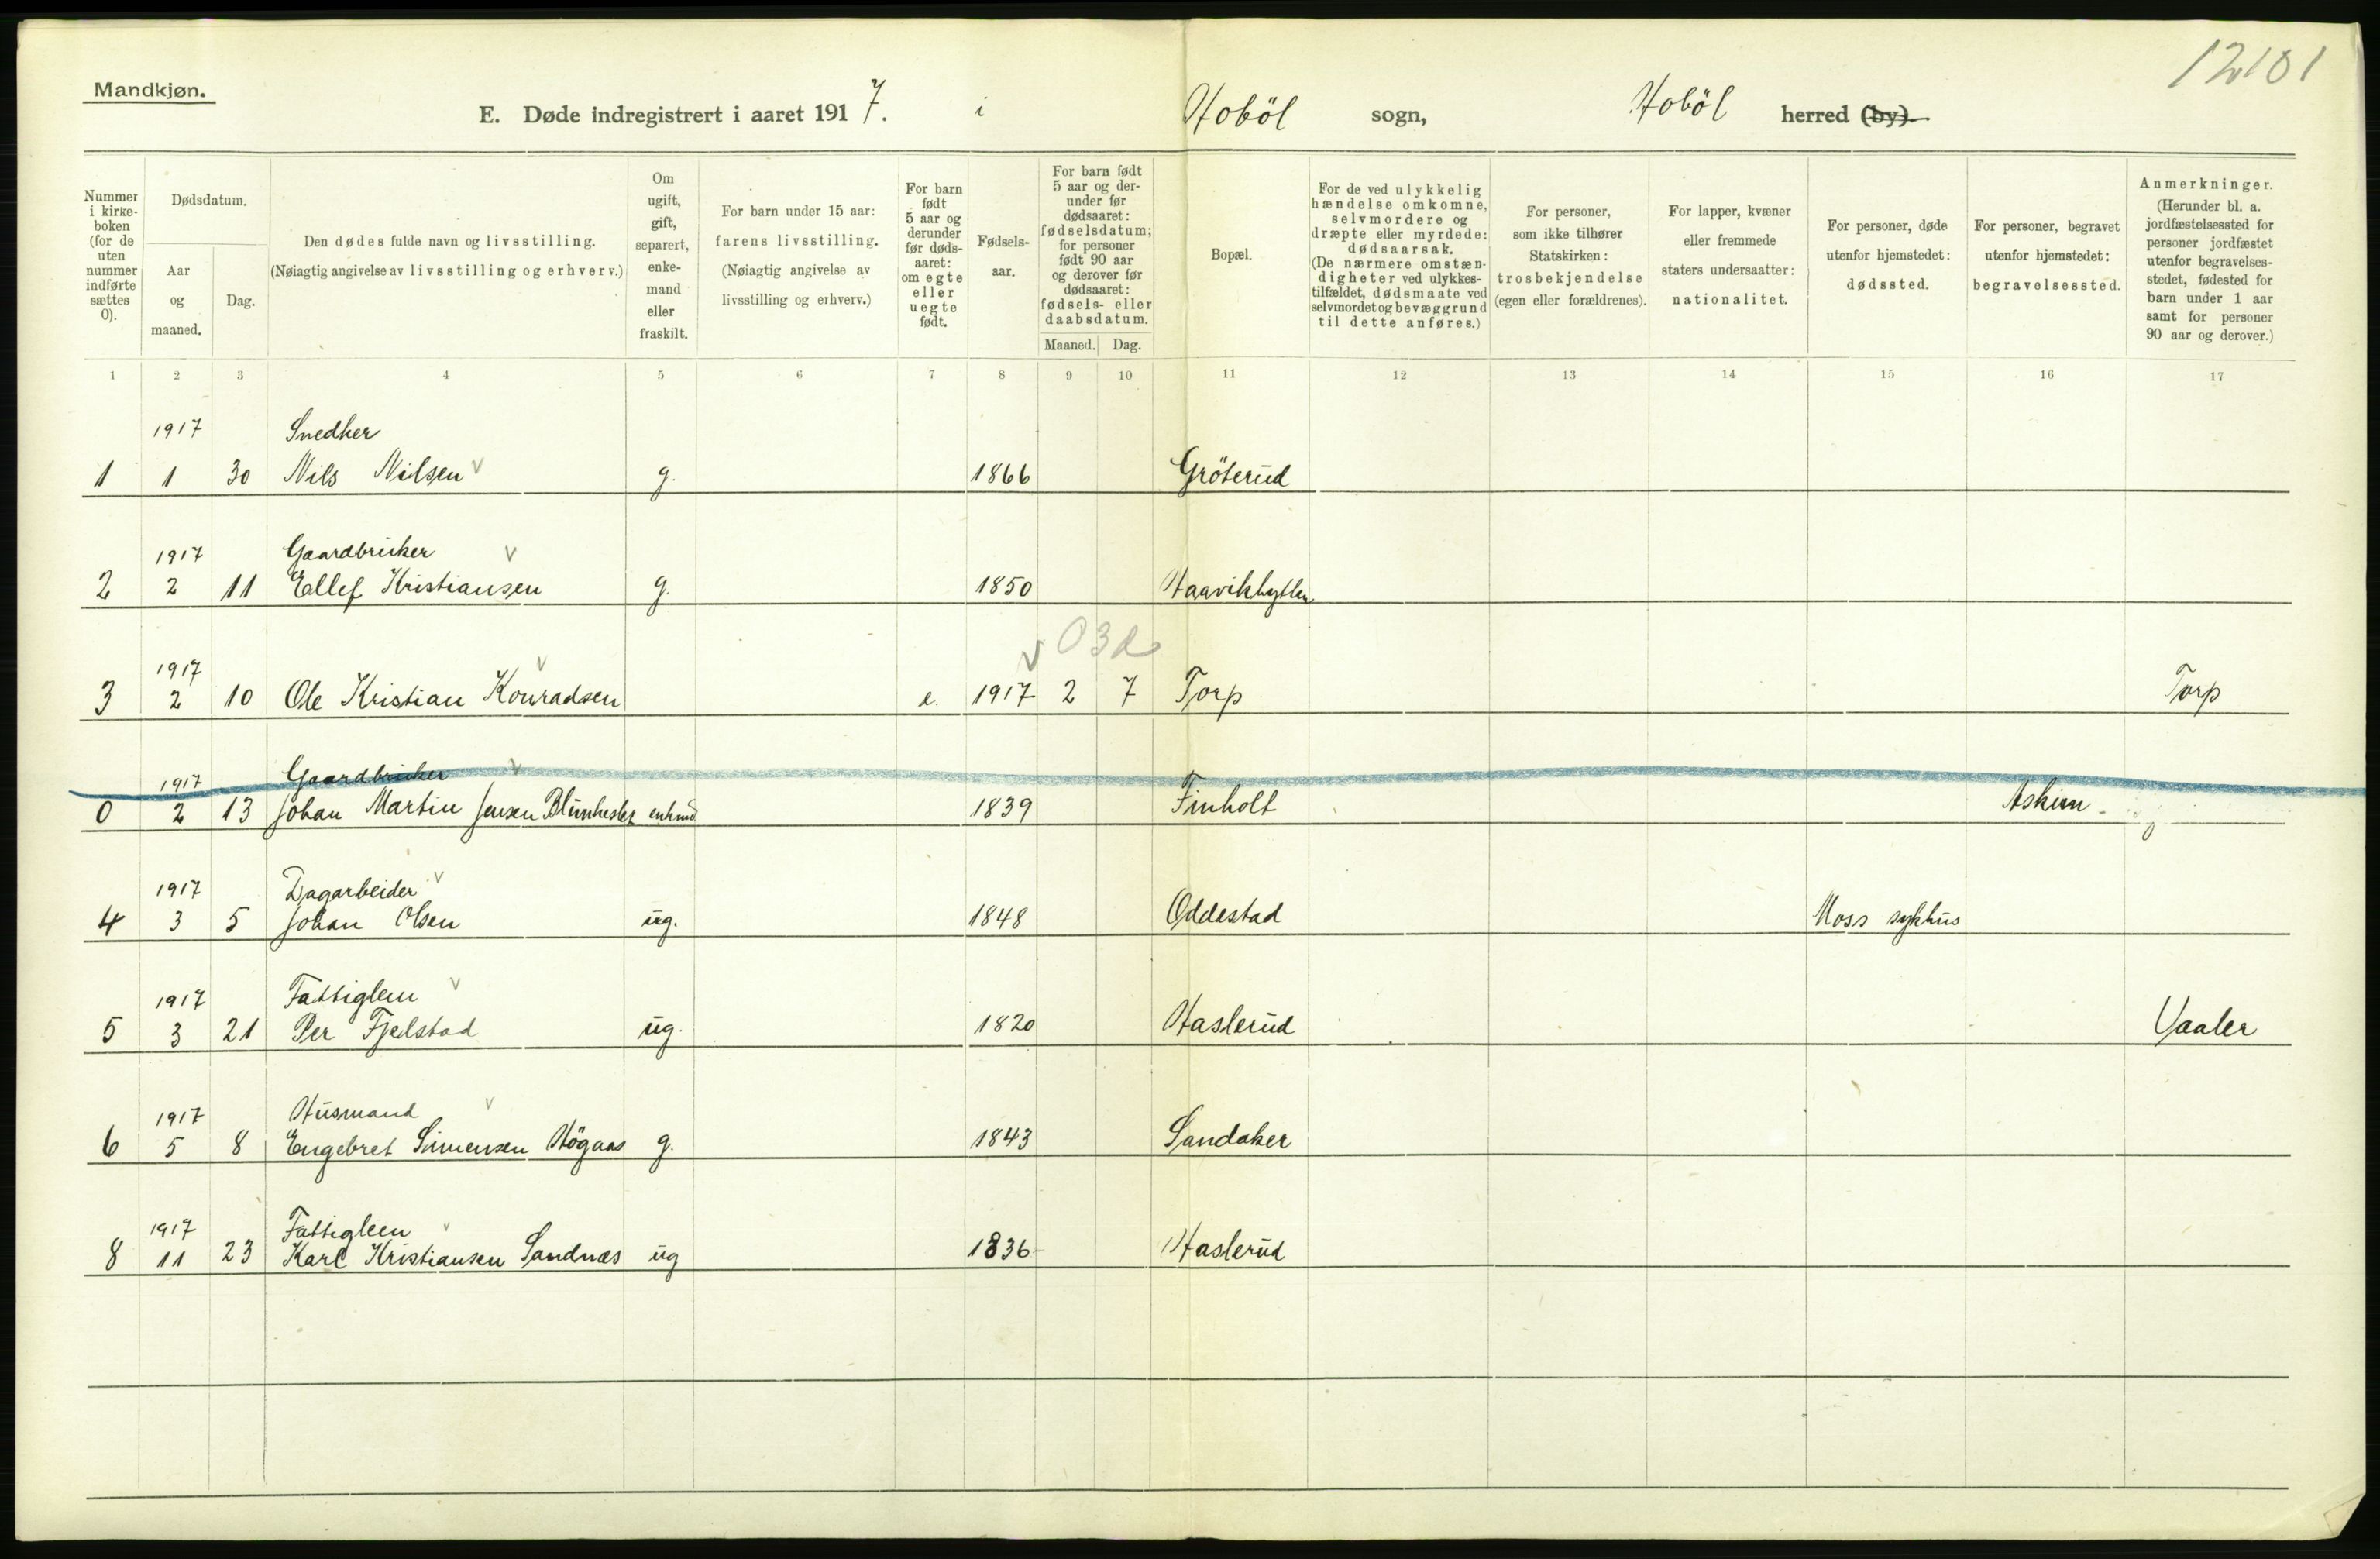 12101
Mandkjøn.
E. Døde indregistrert i aaret 1917. i Hoböl sogn, Hoböl herred (by).
Nummer i kirke-boken (for de uten nummer indførte sættes 0).
Dødsdatum.
Aar og maaned.
Dag.
Den dødes fulde navn og livsstilling.
(Nøiagtig angivelse av livsstilling og erhverv.)
Om ugift, gift, separert, enke-mand eller fraskilt.
For barn under 15 aar: farens livsstilling.
(Nøiagtig angivelse av livsstilling og erhverv.)
For barn født 5 aar og derunder før døds-aaret: om egte eller uegte født.
Fødsels-aar.
For barn født 5 aar og der-under før dødsaaret: fødselsdatum; for personer født 90 aar og derover før dødsaaret: fødsels- eller daabsdatum.
Maaned. Dag.
Bopæl.
For de ved ulykkelig hændelse omkomne, selvmordere og dræpte eller myrdede: dødsaarsak.
(De nærmere omstæn-digheter ved ulykkes-tilfældet, dødsmaate ved selvmordet og bevæggrund til dette anføres.)
For personer, som ikke tilhører Statskirken: trosbekjendelse (egen eller forældrenes).
For lapper, kvæner eller fremmede staters undersaatter: nationalitet.
For personer, døde utenfor hjemstedet: dødssted.
For personer, begravet utenfor hjemstedet: begravelsessted.
Anmerkninger.
(Herunder bl. a. jordfæstelsessted for personer jordfæstet utenfor begravelses-stedet, fødested for barn under 1 aar samt for personer 90 aar og derover.)
1 2 3 4 5 6 7 8 9 10 11 12 13 14 15 16 17
1917 Snedker
1 1 30 Nils Nilsen v g. 1866 Gröterud
1917 Gaardbruker v
2 2 11 Ellef Kristiansen g. 1850 Haavikhytten
v 03d
1917 v
3 2 10 Ole Kristian Konradsen e. 1917 2 7 Torp Torp
1917 Gaardbruker v
0 2 13 Johan Martin Jensen enkmd 1839 Finholt Askim
1917 Dagarbeider v
4 3 5 Johan Olsen ug. 1848 Oddestad Moss sykhus
1917 Fattiglem v
5 3 21 Per Fjelstad ug. 1820 Haslerud Vaaler
1917 Husmand v
6 5 8 Engebret Simensen Högaas g. 1843 Sandaker
1917 Fattiglem v
8 11 23 Karl Kristiansen Sandnæs ug 1836 Haslerud